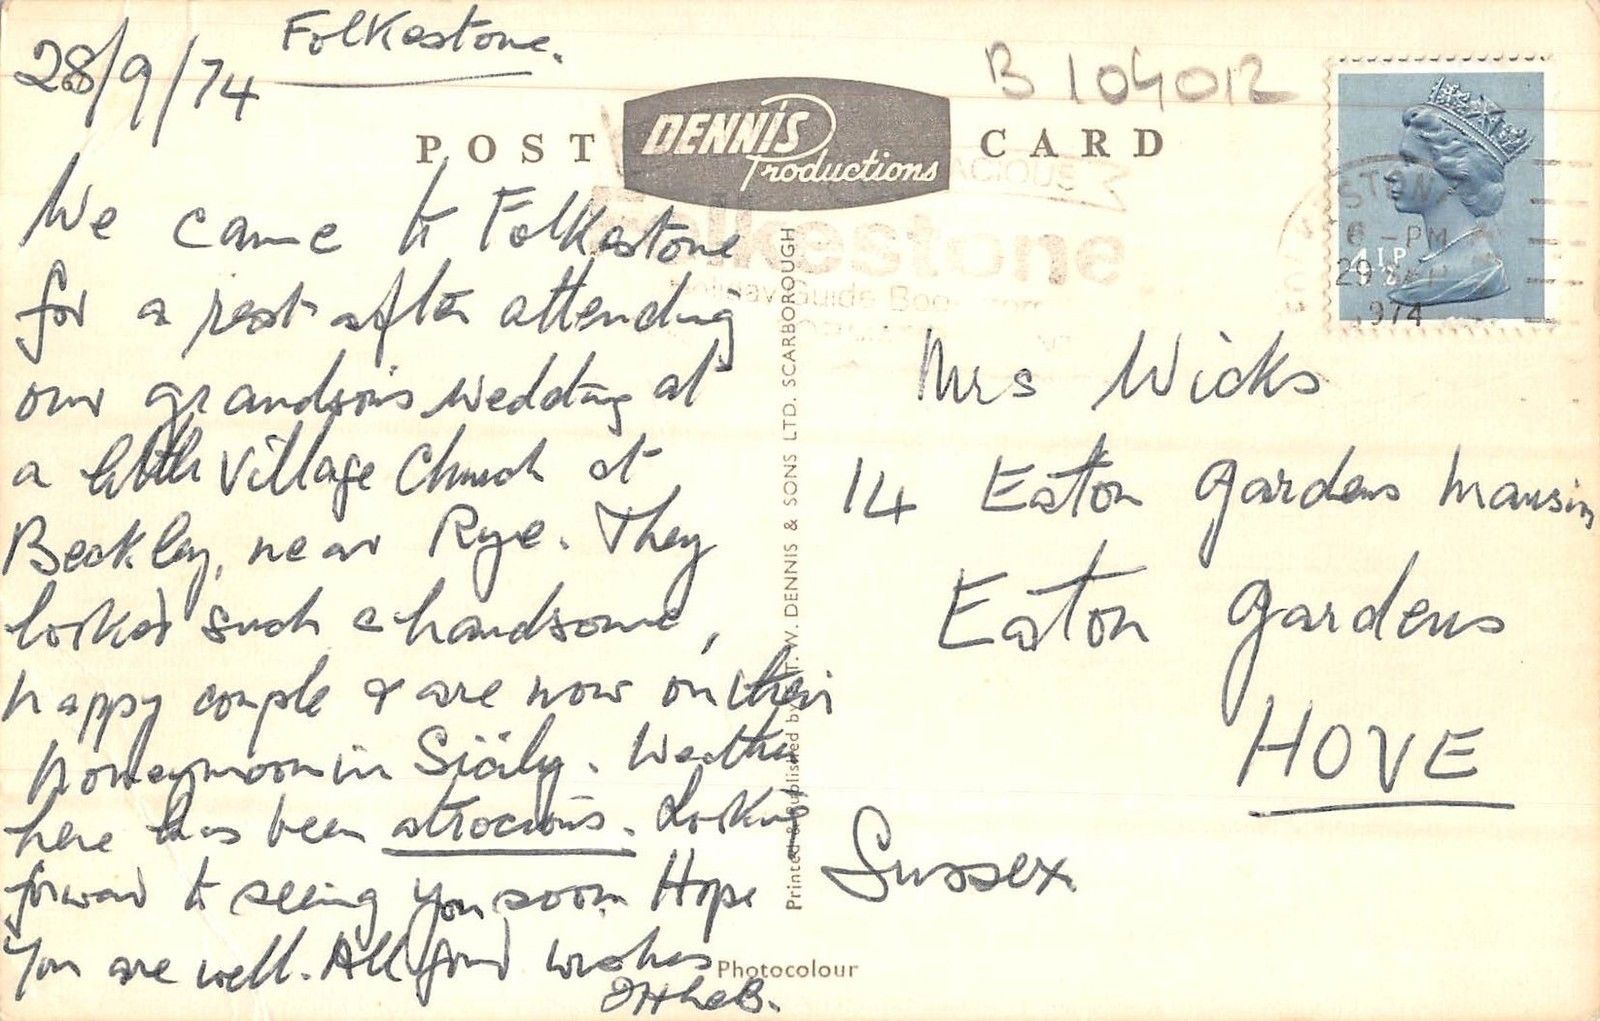 28/9/74 Folkestone.
B 104012
POST CARD
DENNIS
Productions
We came to Folkestone
for a rest after attending
our grandson's wedding at
a little village Church at
Beckley, near Rye. They
looked such a handsome,
happy couple & are now on their
honeymoon in Sicily. Weather
here has been atrocious. Looking
forward to seeing you soon Hope
You are well. All good wishes
Printed & Published by E.T.W. DENNIS & SONS LTD. SCARBOROUGH
Photocolour
Folkestone
Holiday Guide
6 - PM
29 SEP
1974
4½P
Mrs Wicks
14 Eaton Gardens Mansion
Eaton Gardens
HOVE
Sussex